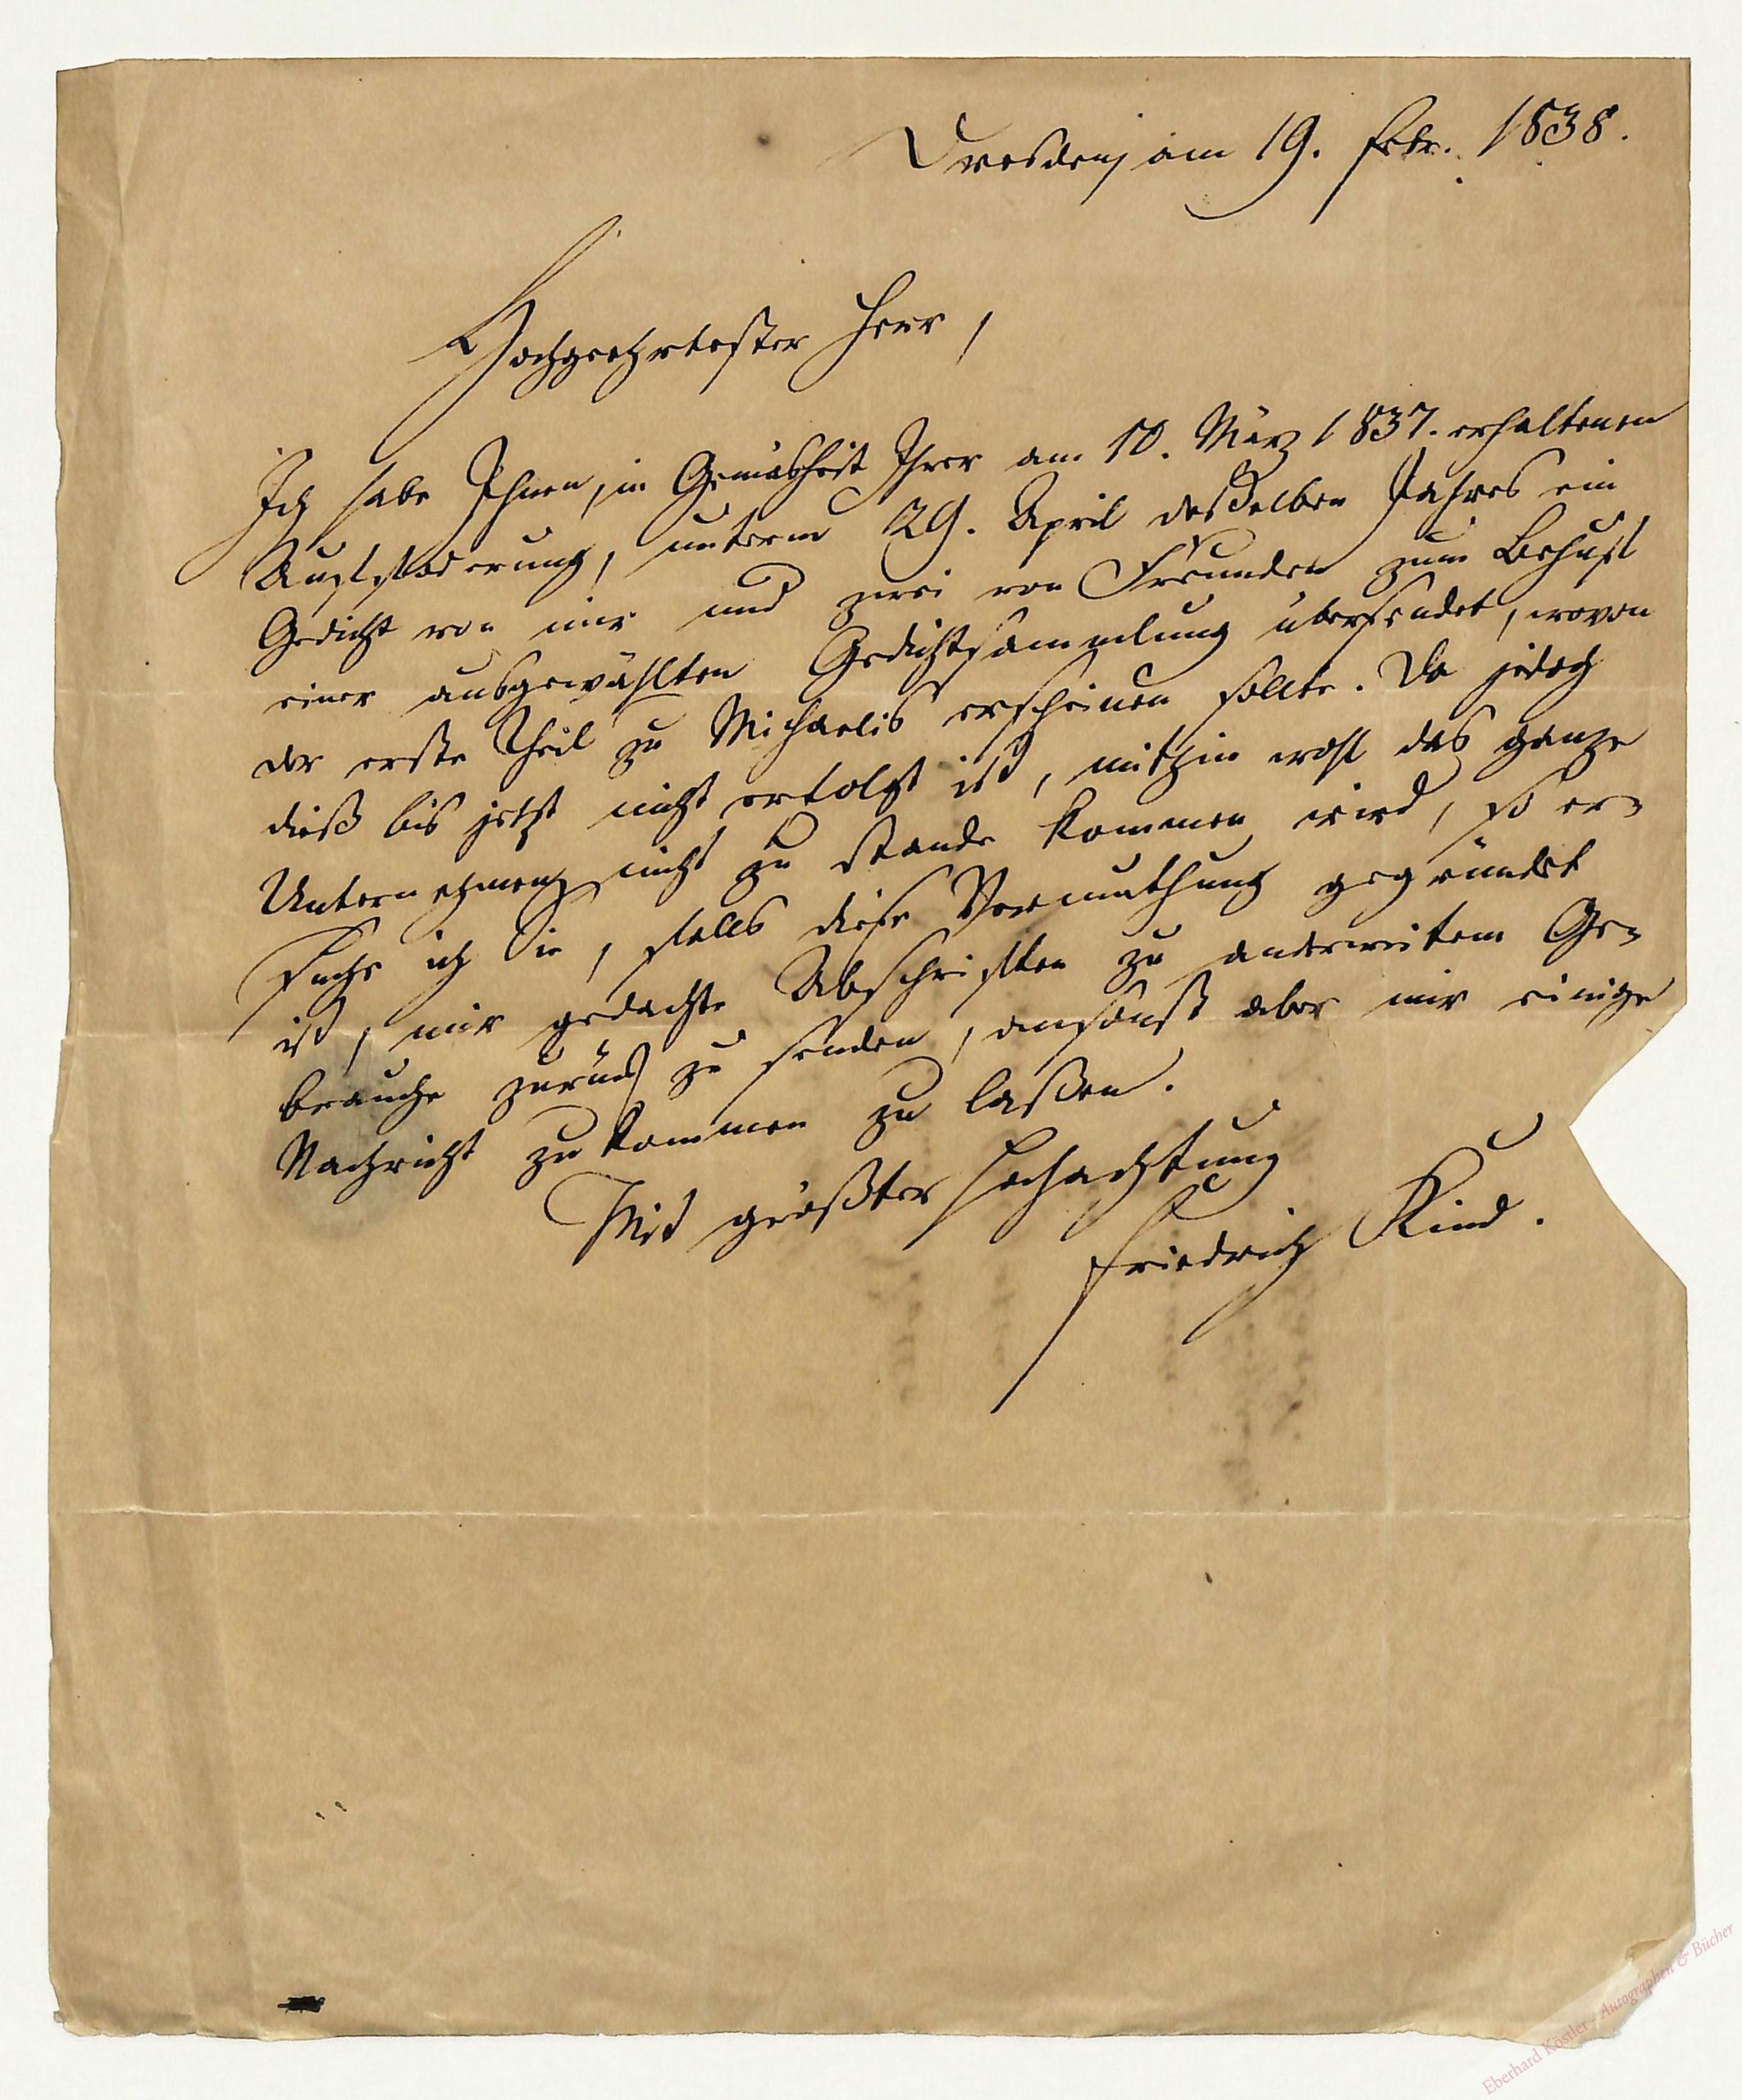 Dresden, am 19. Febr. 1838.
Hochgeehrtester Herr,
Ich habe Ihnen, in Gemäsheit Ihrer am 10. März 1837. erhaltenen
Aufforderung, unterm 29. April desselben Jahres ein
Gedicht von mir und zwei von Freunden zum Behuf
einer ausgewählten Gedichtsammlung übersendet, wovon
der erste Theil zu Michaelis erscheinen sollte. Da jedoch
dieß bis jetzt nicht erfolgt ist, mithin wohl das ganze
Unternehmen nicht zu stande kommen wird, so er-
suche ich Sie, falls diese Vermuthung gegründet
ist, mir gedachte Abschriften zu anderweitem Ge-
brauche zurück zu senden, ansonst aber mir einige
Nachricht zukommen zu laßen.
Mit größter Hochachtung
Friedrich Kind.
Eberhard Köstler - Autographen & Bücher